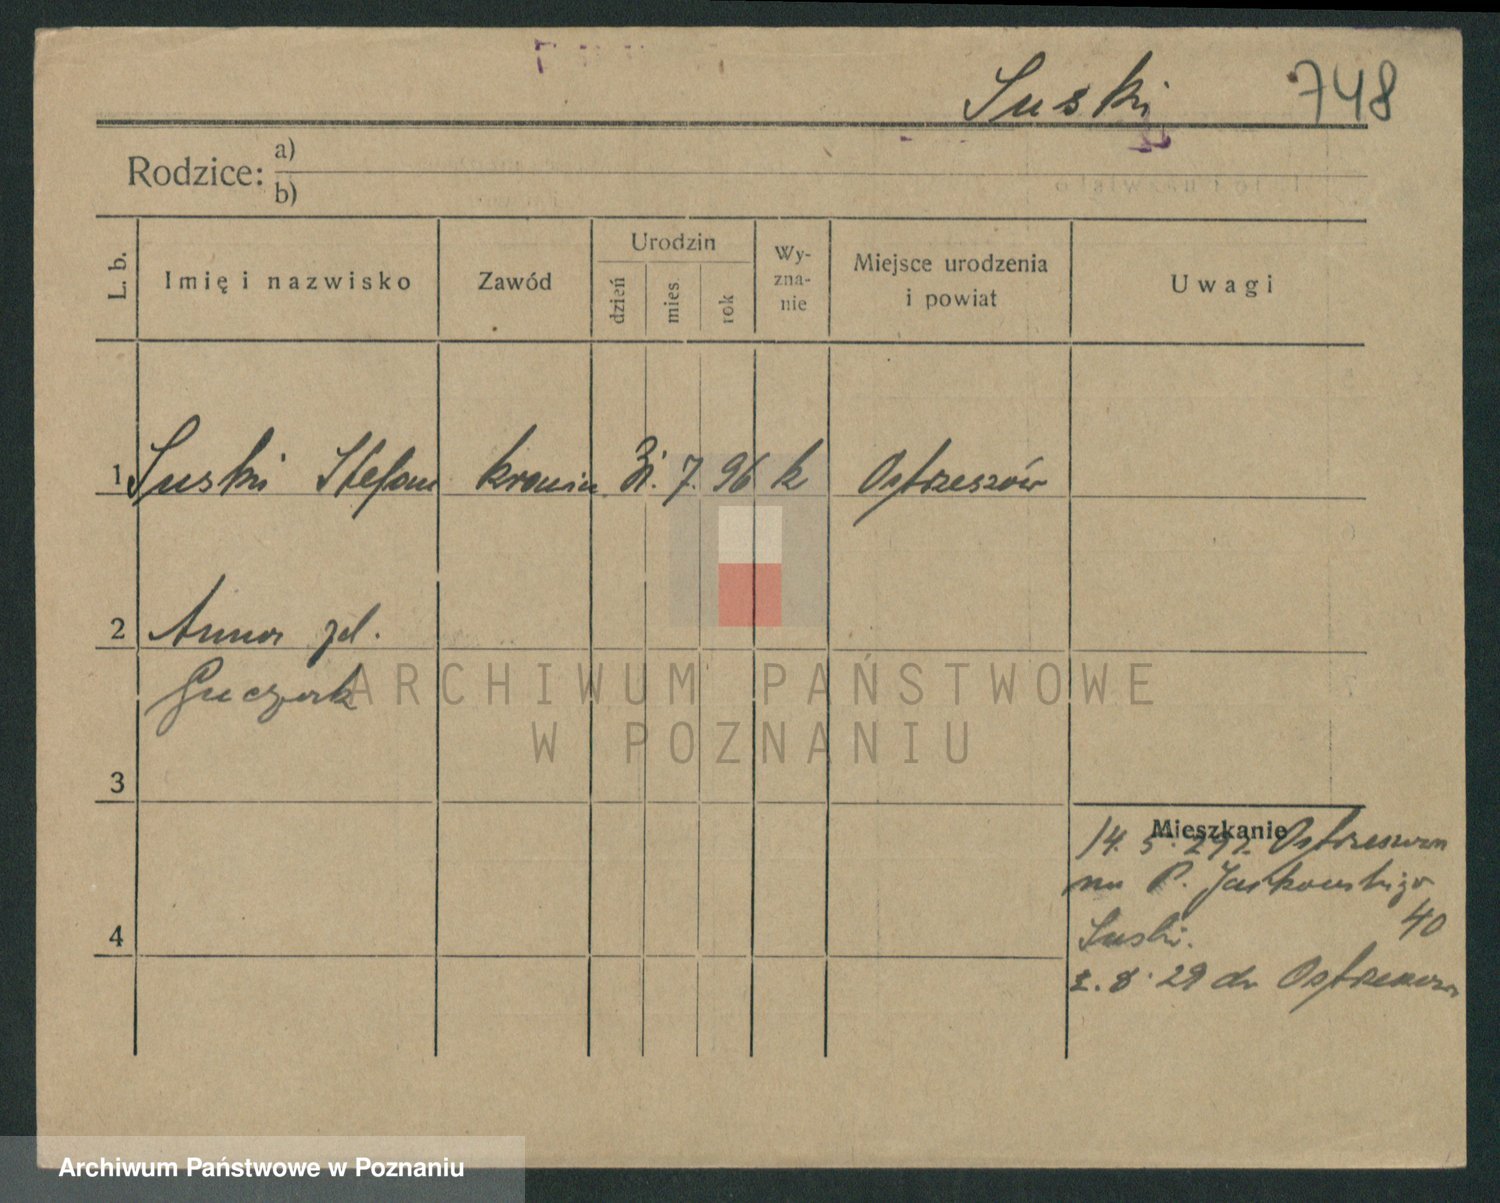 Suski 748
Rodzice: a)
b)
L. b. Imię i nazwisko Zawód Urodzin dzień mies. rok Wy-zna-nie Miejsce urodzenia i powiat Uwagi
1 Suski Stefan 31. 7. 96 k Ostrzeszów
2 Anna
3
Mieszkanie
14. 5. 29 z Ostrzeszowa
na P. Jackowskiego
40
4
Suski.
8. 29 do Ostrzeszowa
ARCHIWUM PAŃSTWOWE
W POZNANIU
Archiwum Państwowe w Poznaniu